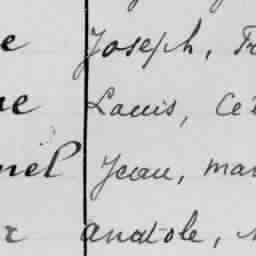 e Joseph, Fr
ne Louis, Cé
nel Jean, mar
r anatole,